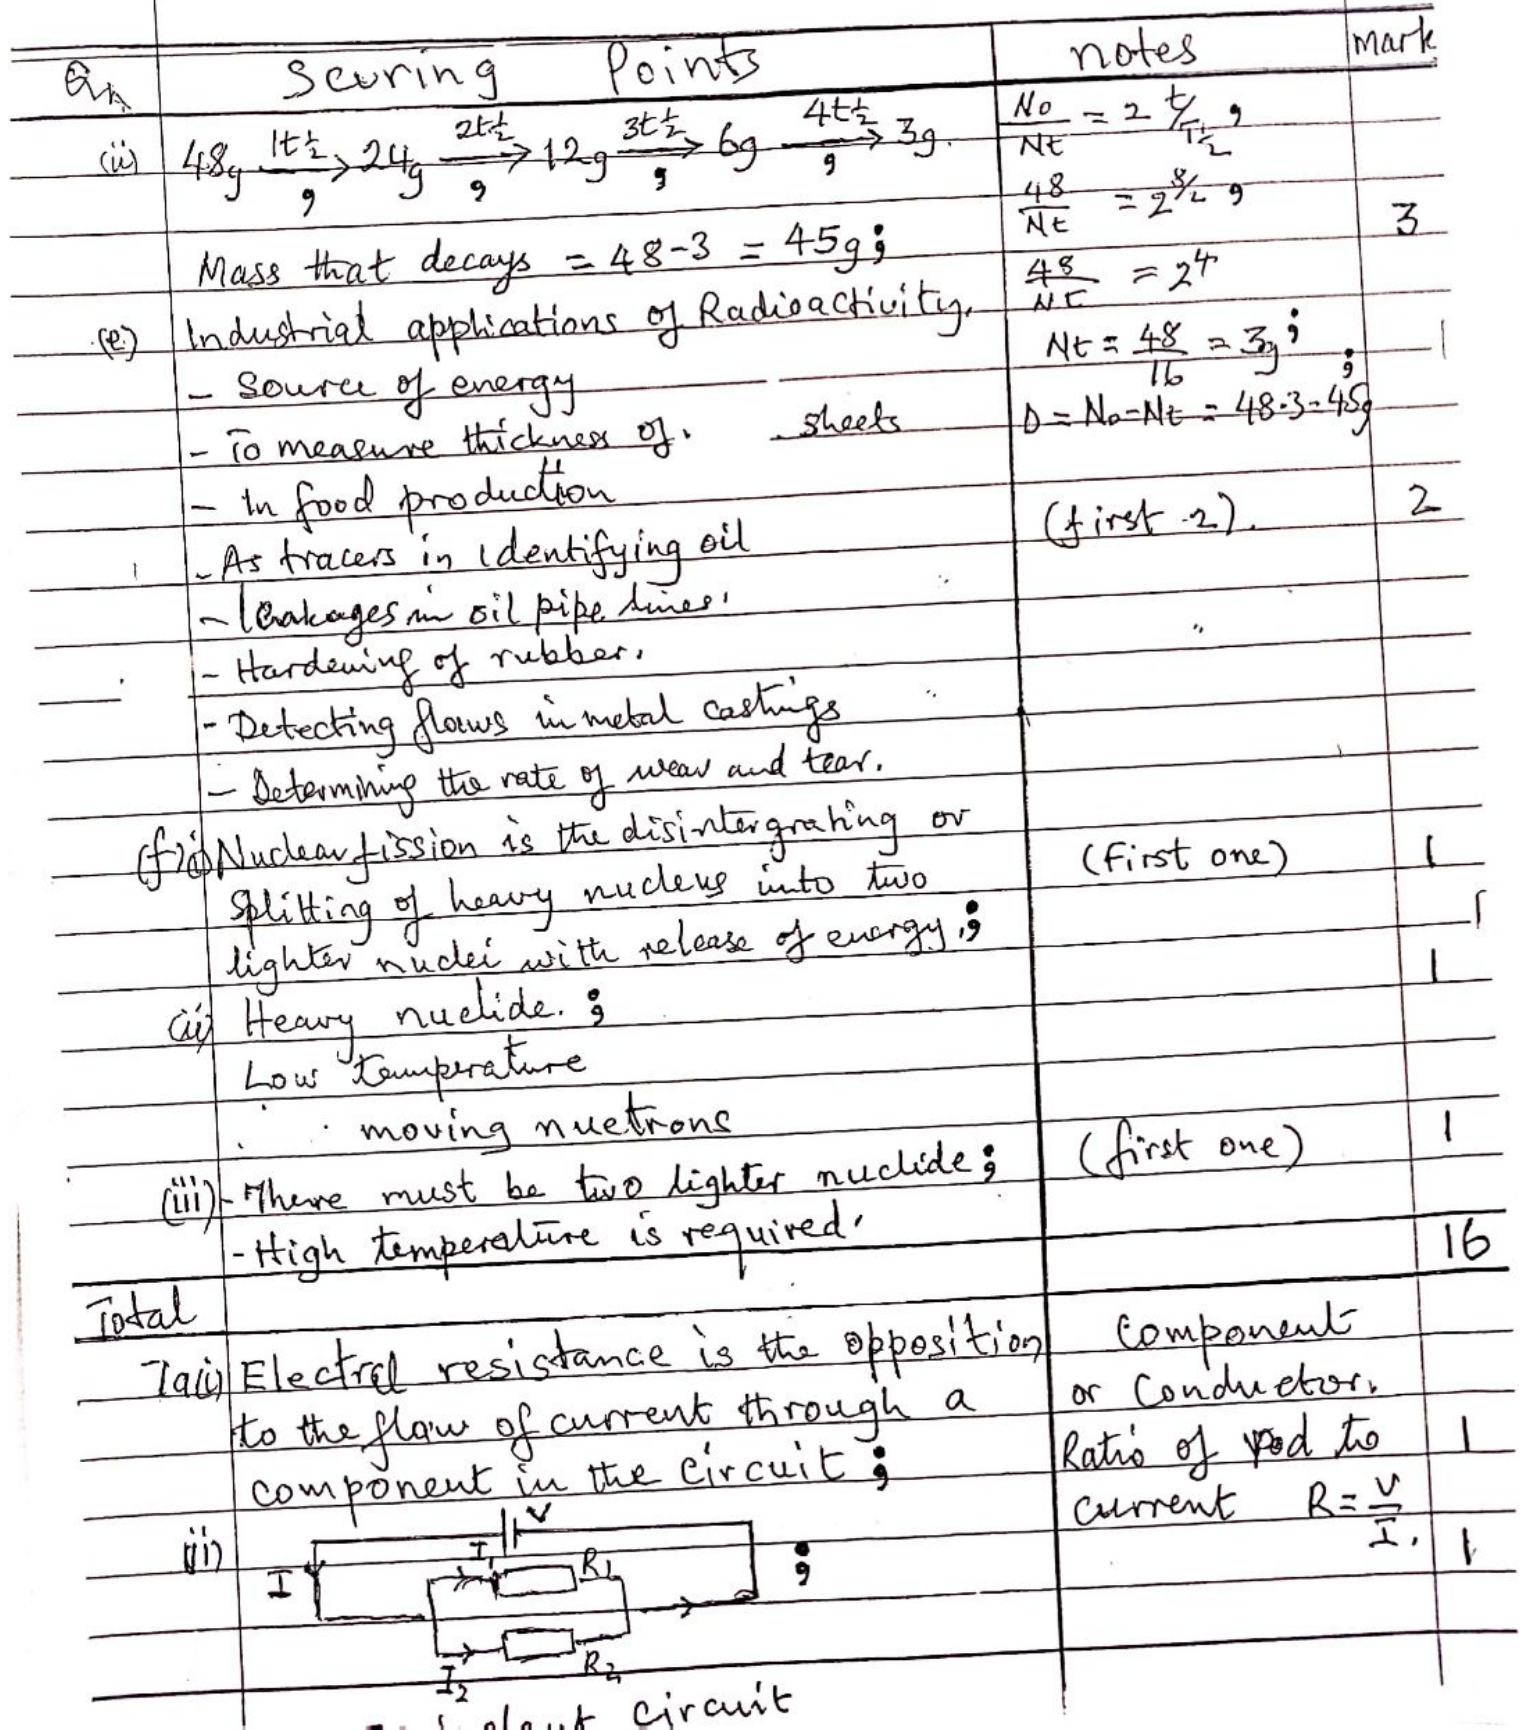 Qn Scoring Points notes mark
(ii) 48g 1t½→ 24g 2t½→ 12g 3t½→ 6g 4t½→ 3g. No/Nt = 2 t/T½ ,
48/Nt = 2 8/2 ,
Mass that decays = 48-3 = 45g; 3
48/Nt = 2⁴
(e) Industrial applications of Radioactivity.
Nt = 48/16 = 3g; ; 1
- Source of energy
D = No-Nt = 48-3=45g
- To measure thickness of. sheets
- In food production (first 2). 2
- As tracers in identifying oil
- leakages in oil pipe lines.
- Hardening of rubber.
- Detecting flaws in metal castings
- Determining the rate of wear and tear.
(f)(i) Nuclear fission is the disintergrating or (First one) 1
splitting of heavy nucleus into two
lighter nuclei with release of energy.; 1
(ii) Heavy nuclide. ; 1
Low temperature
moving nuetrons
(iii) - There must be two lighter nuclide; (first one) 1
- High temperature is required.
16
Total
7a(i) Electral resistance is the opposition Component
to the flow of current through a or Conductor.
component in the circuit ; Ratio of pd to 1
current R = V/I.
(ii) V ; 1
I I₁ R₁
I₂ R₂
circuit